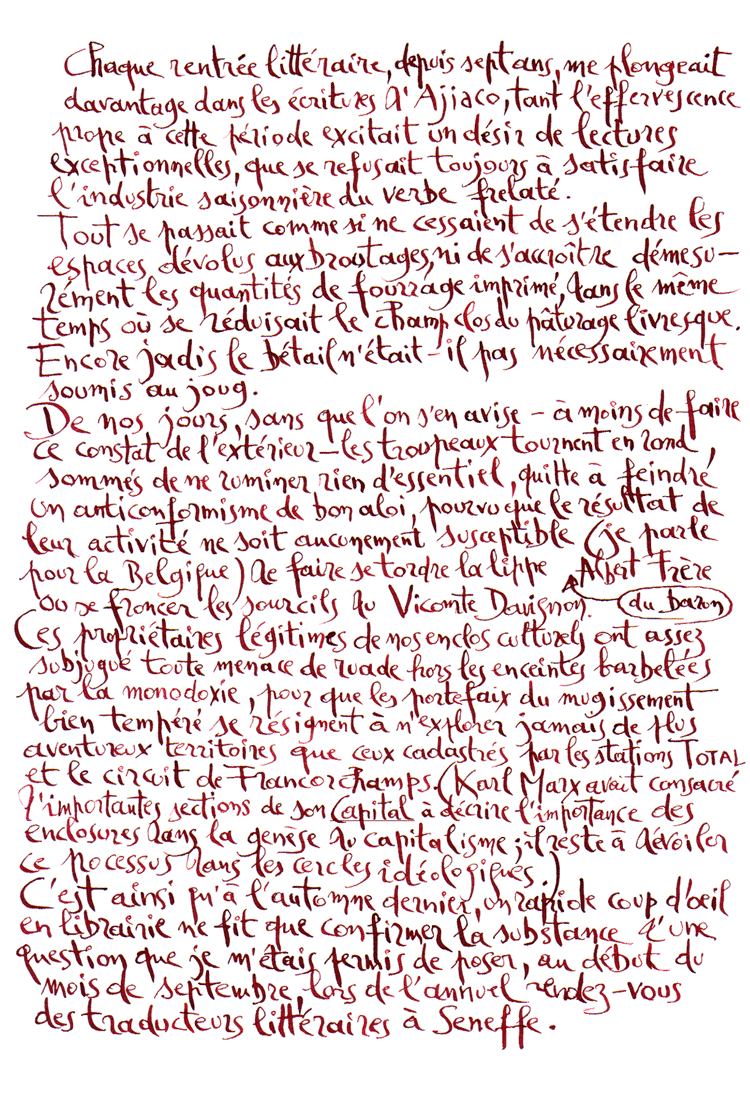 Chaque rentrée littéraire, depuis sept ans, me plongeait
davantage dans les écritures d'Ajiaco, tant l'effervescence
propre à cette période excitait un désir de lectures
exceptionnelles, que se refusait toujours à satisfaire
l'industrie saisonnière du verbe frelaté.
Tout se passait comme si ne cessaient de s'étendre les
espaces dévolus aux broutages, ni de s'accroître démesu-
rément les quantités de fourrage imprimé, dans le même
temps où se réduisait le champ clos du pâturage livresque.
Encore jadis le bétail n'était-il pas nécessairement
soumis au joug.
De nos jours, sans que l'on s'en avise - à moins de faire
ce constat de l'extérieur - les troupeaux tournent en rond,
sommés de ne ruminer rien d'essentiel, quitte à feindre
un anticonformisme de bon aloi, pourvu que le résultat de
leur activité ne soit aucunement susceptible (je parle
pour la Belgique) de faire se tordre la lippe Albert Frère
ou se froncer les sourcils du Vicomte Davignon. du baron
Ces propriétaires légitimes de nos enclos culturels ont assez
subjugué toute menace de ruade hors les enceintes barbelées
par la monodoxie, pour que les portefaix du mugissement
bien tempéré se résignent à n'explorer jamais de plus
aventureux territoires que ceux cadastrés par les stations TOTAL
et le circuit de Francorchamps. (Karl Marx avait consacré
d'importantes sections de son Capital à décrire l'importance des
enclosures dans la genèse du capitalisme ; il reste à dévoiler
ce processus dans les cercles idéologiques.)
C'est ainsi qu'à l'automne dernier, un rapide coup d'œil
en librairie ne fit que confirmer la substance d'une
question que je m'étais permis de poser, au début du
mois de septembre, lors de l'annuel rendez-vous
des traducteurs littéraires à Seneffe.